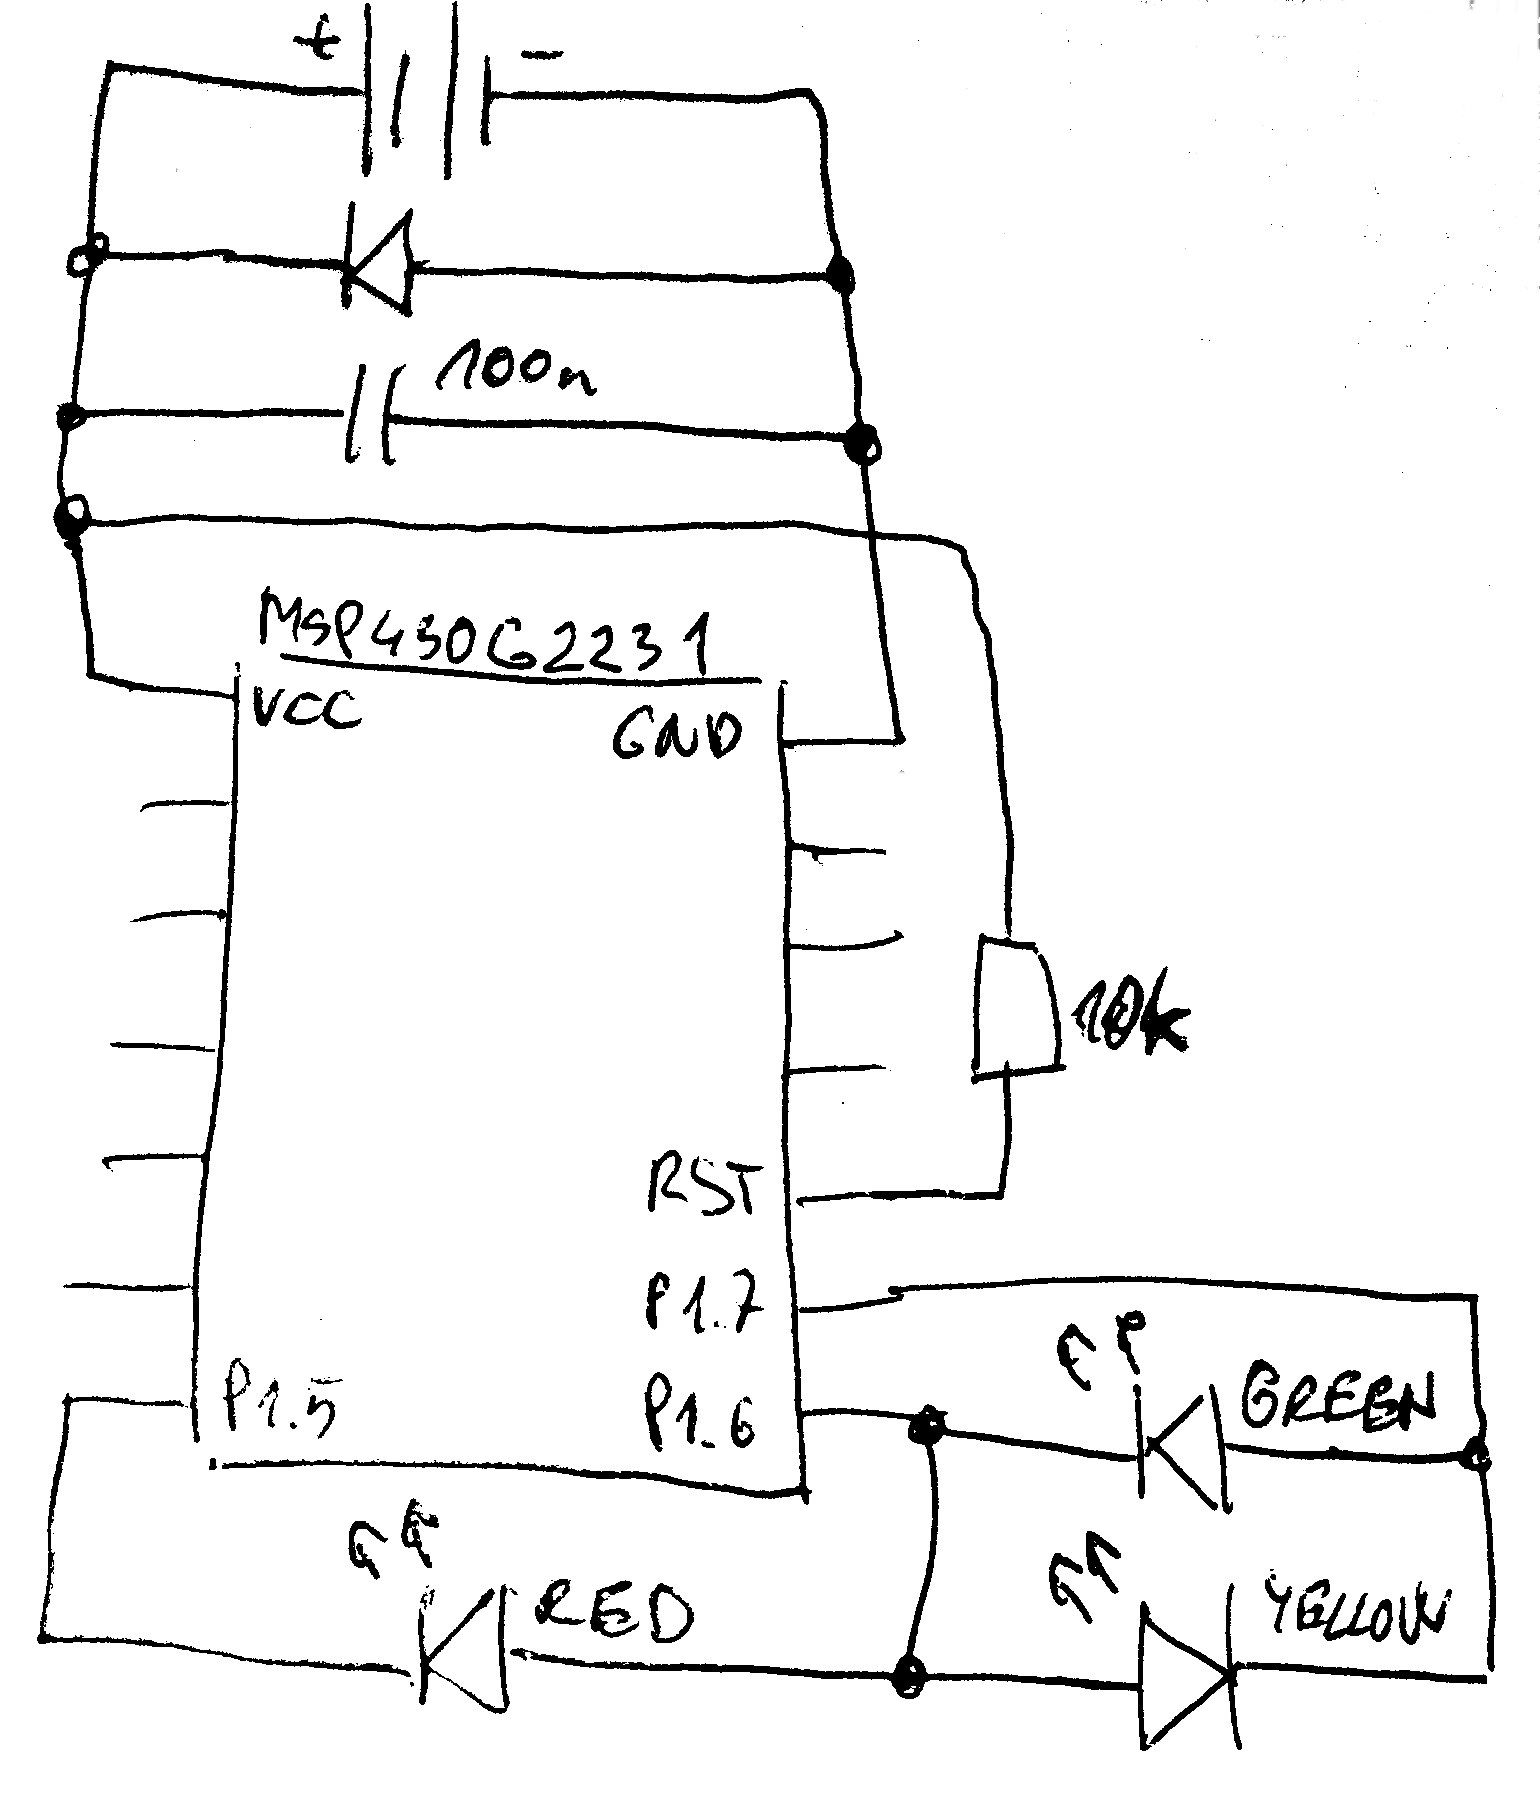 + -
100n
MSP430G2231
VCC GND
10k
RST
P1.7
GREEN
P1.5 P1.6
RED YELLOW